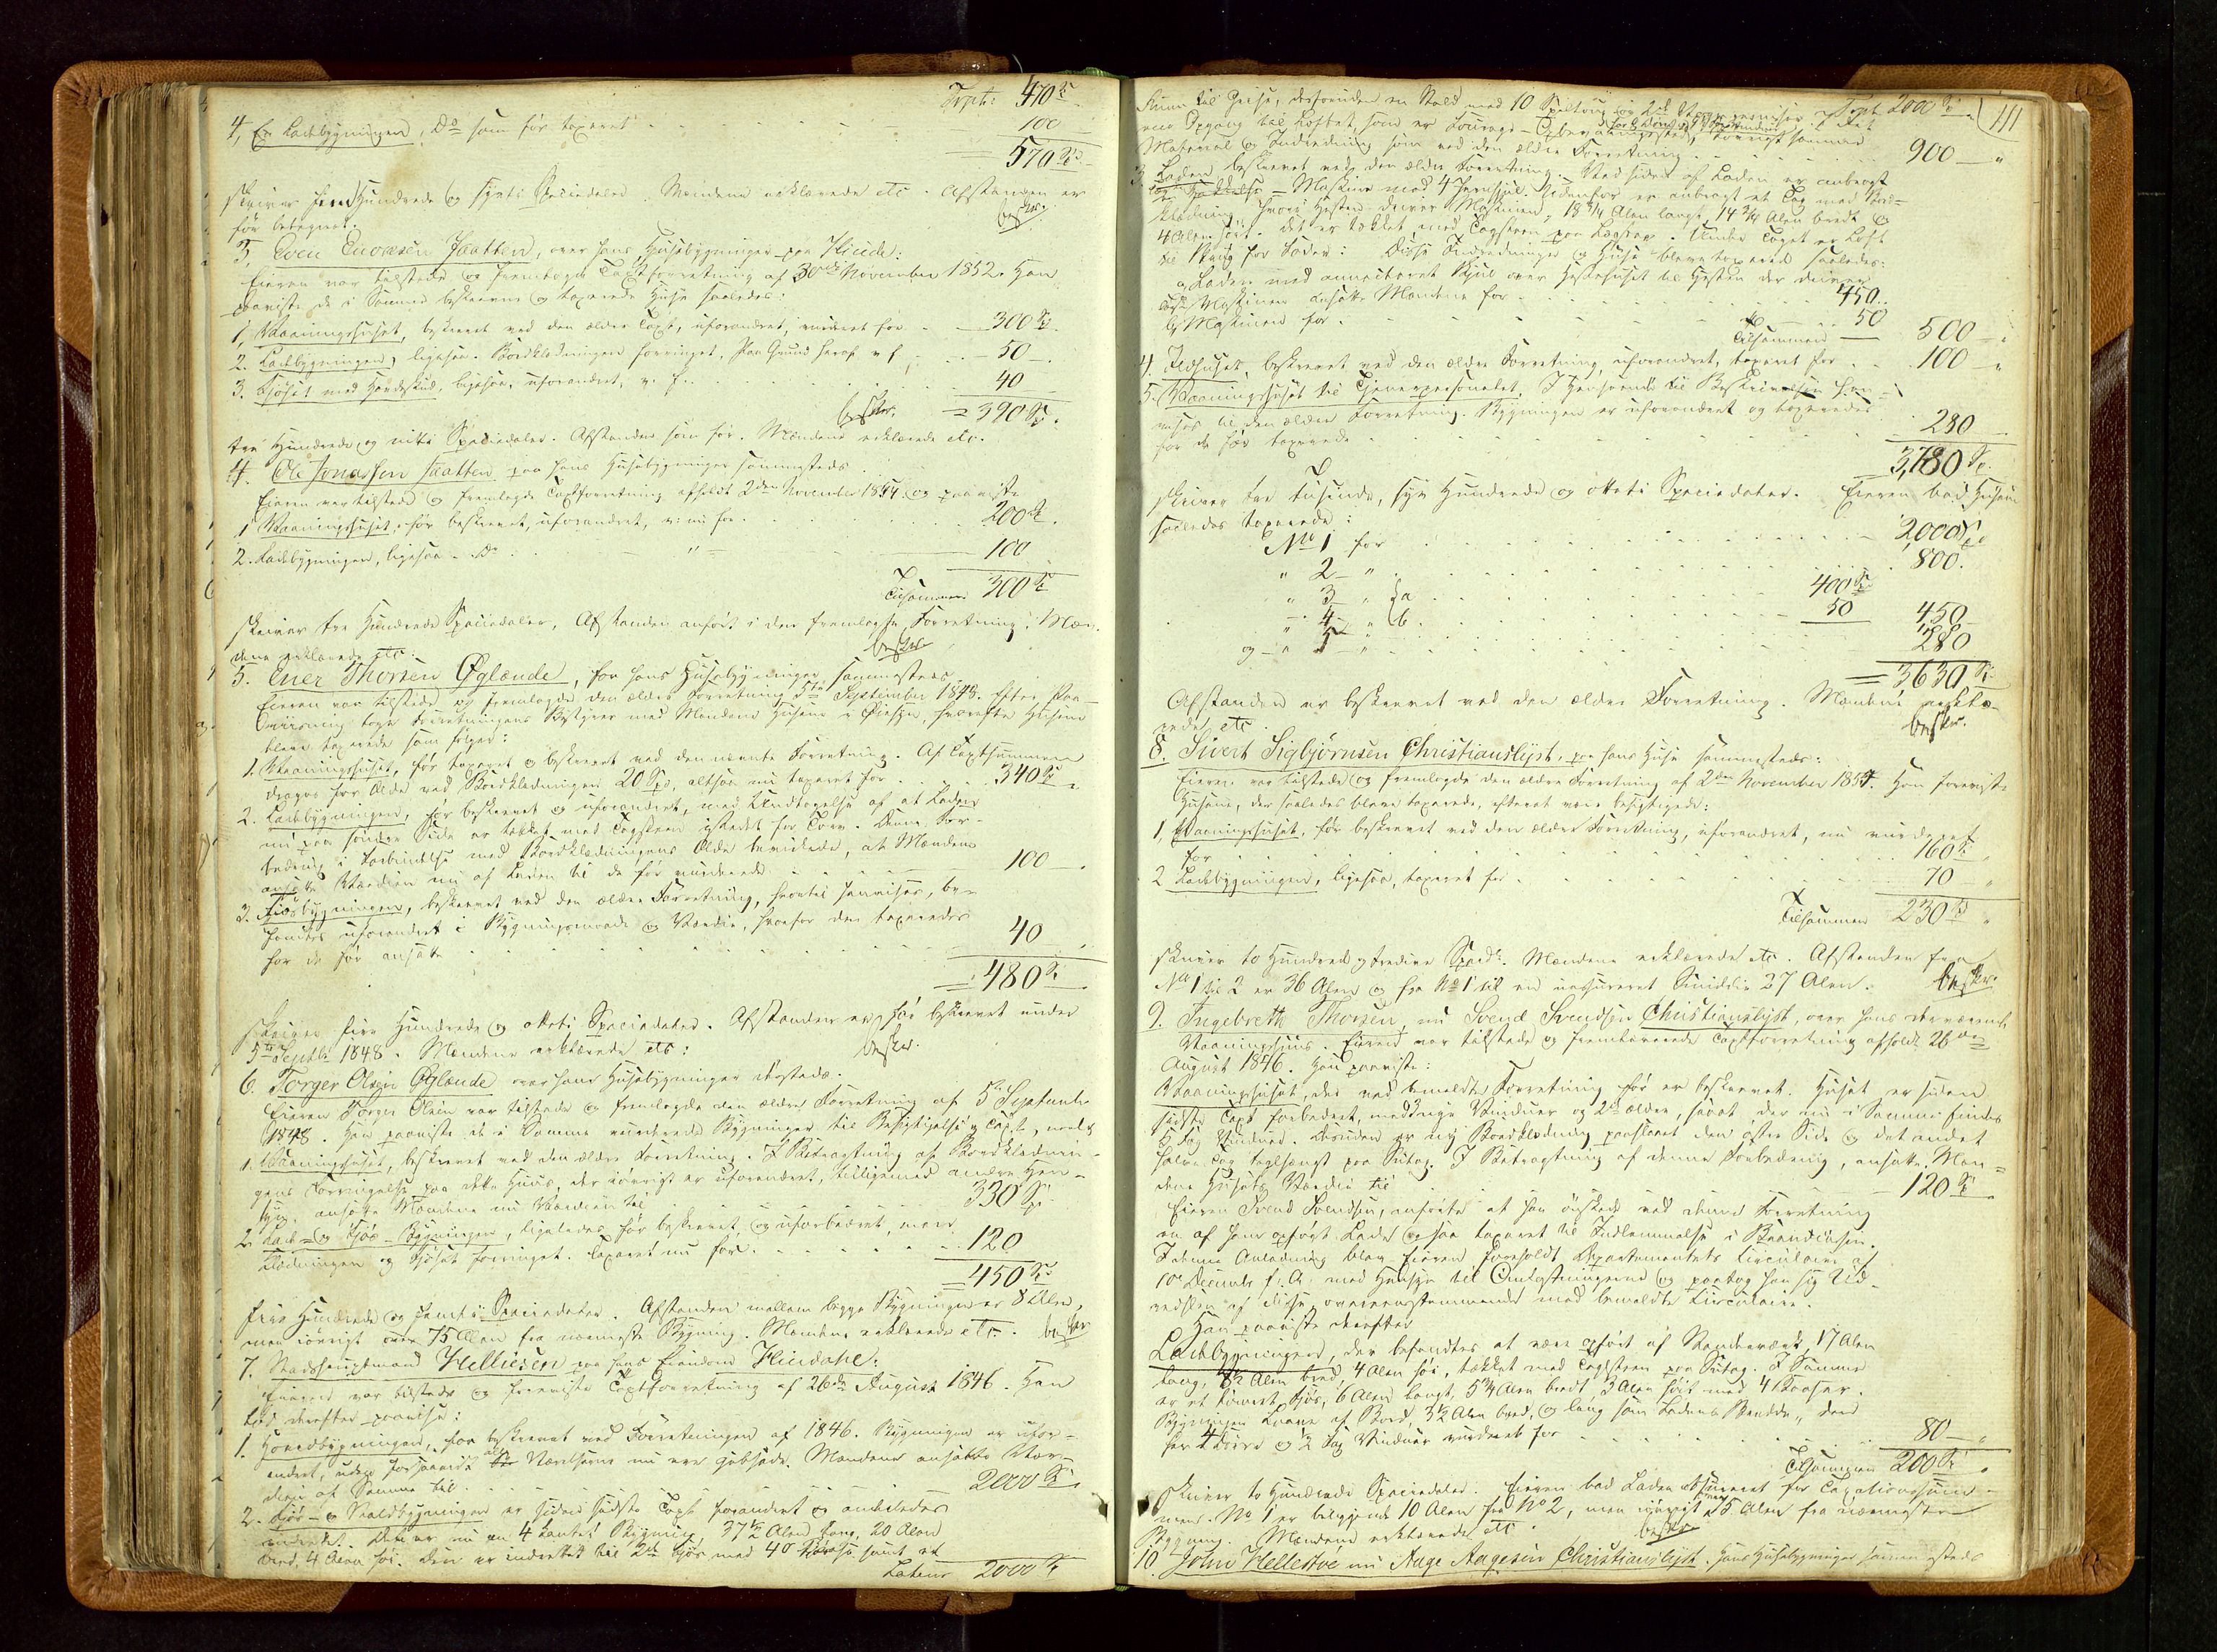 Trspt: 470 Sp
4, En Ladebygningen, Do som før taxeret 100
570 Sp
skriver fem Hundrede og syvti Speciedaler. Mændene erklærede etc. Afstanden er
før betegnet.
beskr.
3, Even Enoxsen Jaatten, over hans Huusebygninger paa Hinde:
Eieren var tilstede og fremlagde Taxtforretning af 30te November 1852. Han
paaviste de i Samme beskrevne og taxerede Huse saaledes:
1, Vaaningshuset, beskrevet ved den ældre Taxt, uforandret, vurderet for 300 Sp.
2. Ladebygningen, ligesaa. Bordklædningen forringet. Paa Grund heraf v. f. 50
3. Fjøset med Høedeskud, ligesaa, uforandret, v. f. 40
beskr. = 390 Sp.
tre Hundrede og niti Speciedaler. Afstanden som før. Mændene erklærede etc.
4. Ole Jonassen Jaatten paa hans Huusebygninger sammesteds
Eieren var tilstede og fremlagde Taxtforretning afholdt 2den November 1854 og paaviste
1 Vaaningshuset, før beskrevet, uforandret, v: nu for 200 Sp.
2. Ladebygningen, ligesaa Do " 100
Tilsammen 300 Sp
skriver tre Hundrede Speciedaler, Afstanden anført i den fremlagte Forretning. Mæn-
dene erklærede etc:
beskr
5. Ener Thorsen Øglænde, for hans Huusebygninger sammesteds
Eieren var tilstede og fremlagde den ældre Forretning 5te September 1848. Efter Paa-
viisning toge Forretningens Bestyrer med Mændene Husene i Øiesyn, hvorefter Husene
bleve taxerede som følger:
1. Vaaningshuset, før taxeret og beskrevet ved den nævnte Forretning. Af Taxtsummen
drages for Ælde ved Bordklædningen 20 Sp, altsaa nu taxeret for 340 Sp
2. Ladebygningen, før beskrevet og uforandret, med Undtagelse af at Laden
nu paa søndre Side er tækket med Tagsteen istedet for Torv. Denne For-
bedring i Forbindelse med Bordklædningens Ælde bevirkede, at Mændene
ansatte Værdien nu af Laden til de før vurderede 100
3. Fjøsbygningen, beskrevet ved den ældre Forretning, hvortil henvises, be-
fandtes uforandret i Bygningsmaade og Værdie, hvorfor den taxeredes
for de før ansatte 40
= 480 Sp
skriver fire Hundrede og otteti Speciedaler. Afstanden er før beskrevet under
5te Septbr 1848. Mændene erklærede etc:
beskr.
6. Torger Olsen Øglænde over hans Huusebygninger dersteds.
Eieren Torger Olsen var tilstede og fremlagde den ældre Forretning af 5te September
1848. Han paaviste de i Samme vurderede Bygninger til Besigtigelse og Taxt, nemlig
1. Vaaningshuset, beskrevet ved den ældre Forretning. I Betragtning af Bordklædnin-
gens Fornyelse paa dette Huus, der iøvrigt er uforandret, tilligemed andre Hen-
syn, ansatte Mændene nu Værdien til 330 Sp.
2. Lade- og Fjøs-Bygningen, ligeledes før beskrevet, og uforbedret, men
Klædningen og Fjøset forringet. Taxeret nu for 120
= 450 Sp
fire Hundrede og femti Speciedaler. Afstanden mellem begge Bygningerne er 8 Alen,
men iøvrigt over 75 Alen fra nærmeste Bygning. Mændene erklærede etc. beskr
7. Stadshauptmand Helliesen paa hans Eiendom Hindahl:
Eieren var tilstede og foreviste Taxtforretning af 26de August 1846. Han
lod derefter paavise:
1. Hovedbygningen, før beskrevet ved Forretningen af 1846. Bygningen er ufor-
andret, uden forsaavidt alle Værelserne nu ere gibsede. Mændene ansatte Vær-
dien af Samme til 2000 Sp
2. Fjøs- og Staldbygningen er siden sidste Taxt forandret og anderledes
indredet. Den er nu en 4 kantet Bygning, 37½ Alen lang, 20 Alen
bred, 4 Alen høi. Den er indrettet til 2de Fjøs med 40 Baase samt et
Latus 2000 Sp
111
Trspt 2000 Sp
Rum til Grise, desforuden en Stald med 10 Spiltoug
med Opgang til Loftet, som er Fourage-Opbevaringssted,
Material og Indredning som ved den ældre Forretning 900
3. Laden beskrevet ved den ældre Forretning. Ved Siden af Laden er anbragt
- Maskine med 4 Jernhjul. Udenfor er anbragt et Tag med Bord-
klædning, hvori Hesten driver Maskinen, 18¾ Alen langt, 14¾ Alen bredt og
4 Alen høit. Det er tækket med Tagsteen paa Legter. Under Taget er Loft
til Brug for Foder: Disse Indredninger og Huse bleve taxerede saaledes:
a Laden med annecteret Skjul over Hestehuset til Hesten der driver
Maskinen ansatte Mændene for 450
b, Maskinen for 50
Tilsammen 500
4. Ildhuset, beskrevet ved den ældre Forretning, uforandret, taxeret for 100
5. Vaaningshuset til Tjenerpersonalet. I Henseende til Beskrivelsen hen-
vises til den ældre Forretning. Bygningen er uforandret og taxeredes
for de før taxerede 280
3,780 Sp.
skriver tre tusinde, syv Hundrede og otteti Speciedaler. Eieren bad Husene
saaledes taxerede:
No 1 for 2,000 Sp
" 2 - " 800.
" 3 " a 400 Sp
" 4 " b. 50 450
og " 5 " 280
= 3630 Sp
Afstanden er beskrevet ved den ældre Forretning. Mændene erklæ-
rede etc
beskr.
8. Sivert Sigbjørnsen Christianslyst, paa hans Huse sammesteds:
Eieren var tilstede og fremlagde den ældre Forretning af 2den November 1854. Han foreviste
Husene, der saaledes bleve taxerede, efterat være besigtigede:
1, Vaaningshuset, før beskrevet ved den ældre Forretning, uforandret, nu vurderet
for 160 Sp
2 Ladebygningen, ligesaa, taxeret for 70
Tilsammen 230 Sp
skriver to Hundrede og tredive Specd. Mændene erklærede etc. Afstanden fra
No 1 til 2 er 36 Alen og fra No 1 til en uassureret Smiddie 37 Alen.
beskr.
9. Ingebreth Thorsen, nu Svend Svendsen Christianslyst, over hans derværende
Vaaningshuus. Eieren var tilstede og fremleverede Taxtforretning afholdt 26de
August 1846. Han paaviste:
Vaaningshuset, der ved bemeldte Forretning før er beskrevet. Huset er siden
sidste Taxt forbedret, med 3 nye Vinduer og 2de ældre, saa at der nu i Samme findes
5 Fag Vinduer. Desuden er ny Bordklædning paaslaaet den østre Side og det andet
halve Tag teglhængt paa Sutag. I Betragtning af denne Forbedring, ansatte Mæn-
dene Husets Værdie til 120 Sp
Eieren Svend Svendsen, anførte at han ønskede ved denne Forretning
en af ham opført Lade ogsaa taxeret til Indlemmelse i Brandkassen.
I denne Anledning blev Eieren foreholdt Departementets Circulaire af
10de Decembr f. A. med Hensyn til Omkostningerne og paatog han sig Ud-
redslen af disse overensstemmende med bemeldte Circulaire.
Han paaviste derefter
Ladebygningen, der befandtes at være opført af Stenderværk, 17 Alen
lang, 8½ Alen bred, 4 Alen høi, tækket med Taglsteen paa Sutag. I Samme
er et tømret Fjøs, 6 Alen langt, 5¾ Alen bredt, 3 Alen høit med 4 Baaser.
Bygningen Svale af Bord, 3½ Alen bred, og lang som Ladens Bredde, den
har 4 Døre og ½ Fag Vinduer vurderet for 80
Tilsammen 200 Sp
skriver to Hundrede Speciedaler. Eieren bad Laden assureret for Taxationssum-
men. No 1 er beliggende 10 Alen fra No 2, men iøvrigt over 75 Alen fra nærmeste
Bygning. Mændene erklærede etc.
beskr
10. John Hellestøe nu Aage Aagesen Christianslyst. Hans Huusebygninger sammesteds